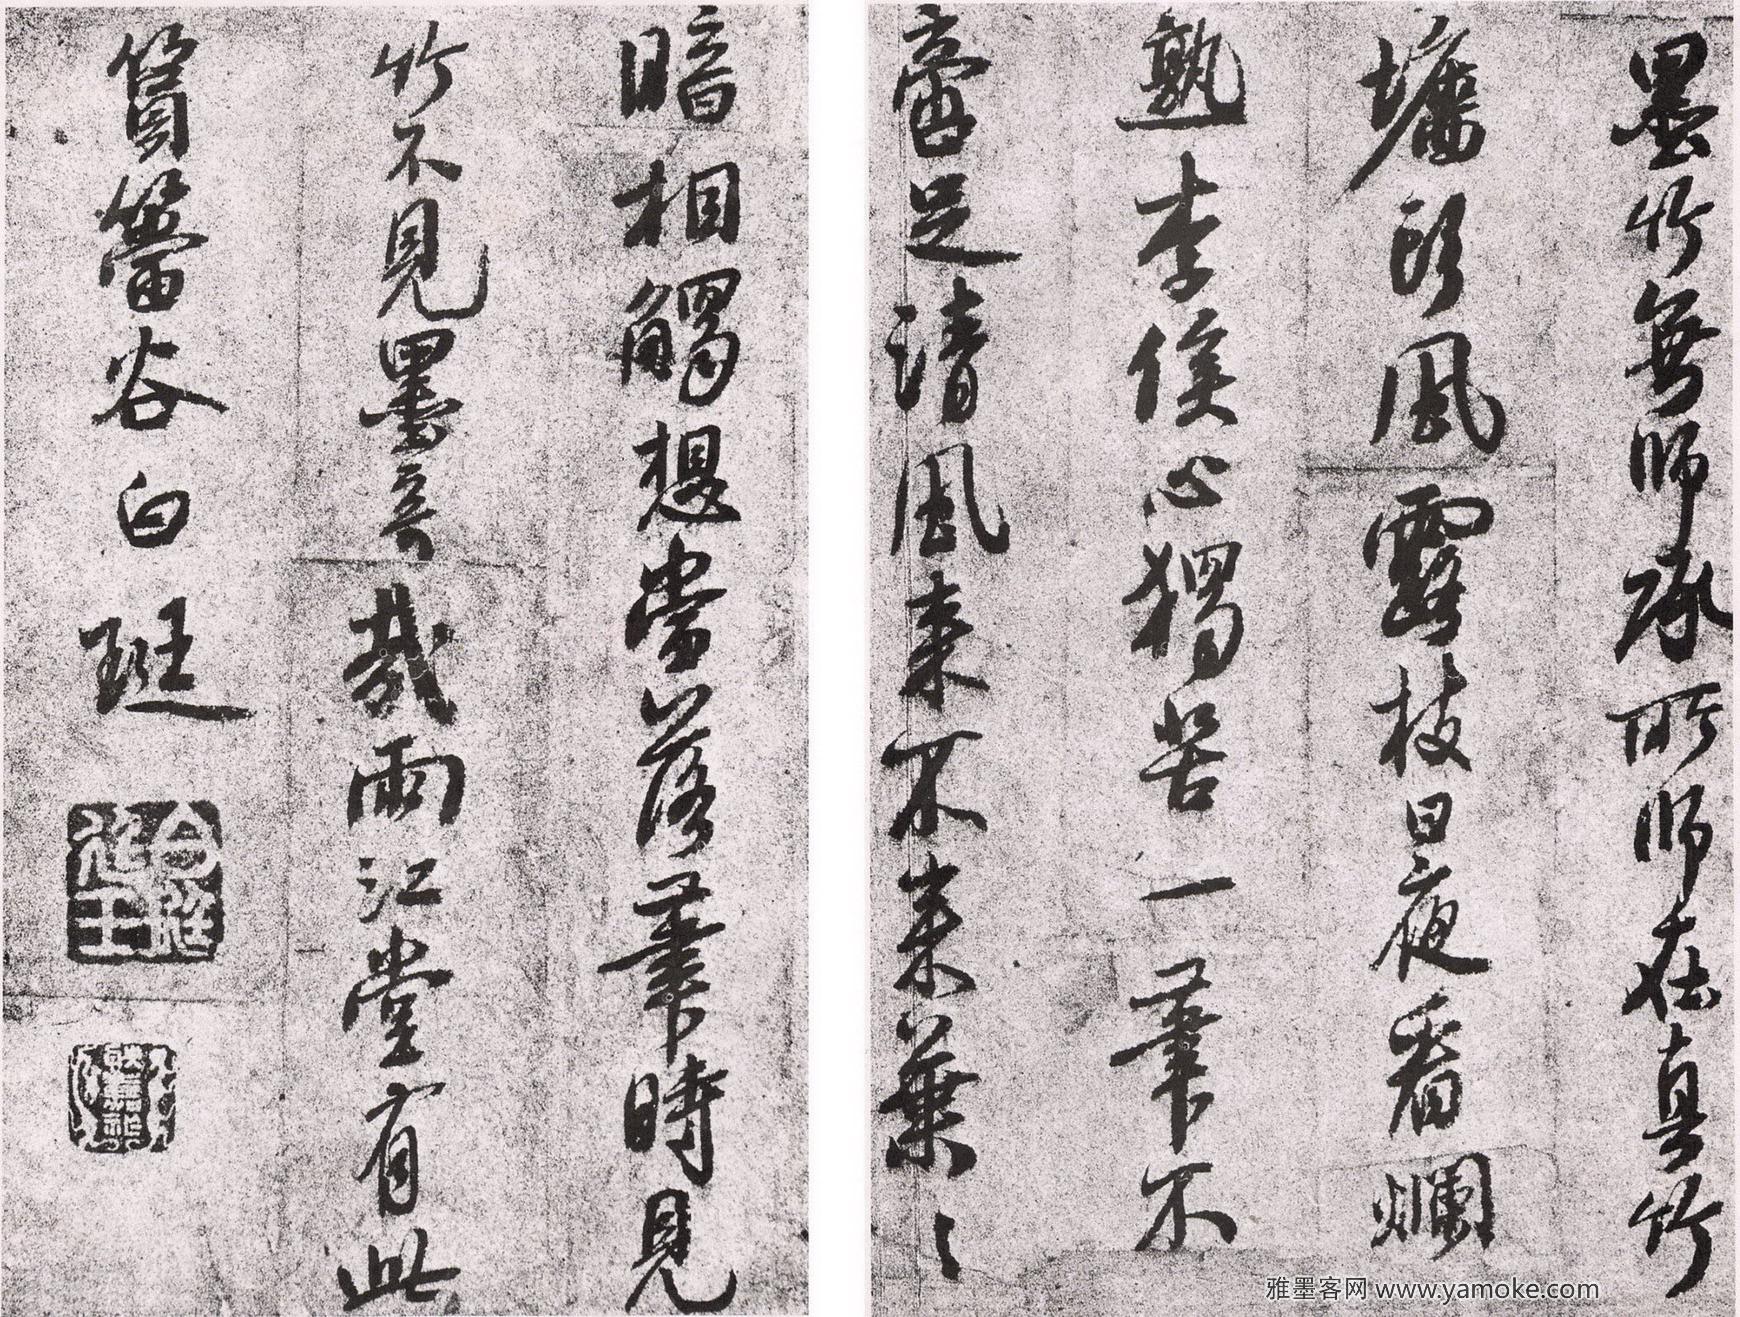 墨竹無師承所師在真竹
墻頭風露枝日夜看爛
熟李侯心獨苦一筆不
啻足清風來不来葉〻
暗相觸想當落筆時見
竹不見墨奇哉兩江堂有此
篔簹谷白珽
雅墨客网 www.yamoke.com